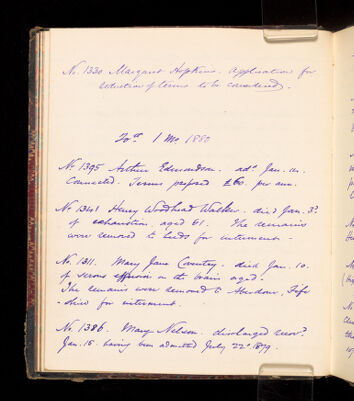 No. 1330 Margaret Hopkins. Application for
reduction of terms to be considered.
20th 1 Mo. 1880
No 1395 Arthur Edmondson. ad. Jan. 14.
Connected. Terms proposed £60. per ann.
No. 1341 Henry Woodhead Walker. died Jan. 3d
of exhaustion, aged 61. The remains
were removed to Leeds for interment.
No. 1311. Mary Jane Coventry. died Jan. 10.
of serous effusion on the brain aged
The remains were removed to Aberdour, Fife-
shire for interment.
No. 1386. Mary Nelson. discharged recov.
Jan. 15. having been admitted July 22d 1879.